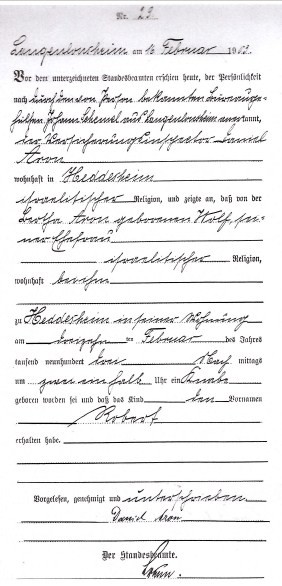 Nr. 23
Langenlonsheim am 16 Februar 1903
Vor dem unterzeichneten Standesbeamten erschien heute, der Persönlichkeit
nach durch den von Person bekannten Bureauge-
hülfen Johann Schenkel aus Langenlonsheim anerkannt,
der Versicherungsinspector Daniel
Aron
wohnhaft in Heddesheim
israelitischer Religion, und zeigte an, daß von der
Bertha Aron geborenen Wolf, sei-
ner Ehefrau
israelitischer Religion,
wohnhaft bei ihm
zu Heddesheim in seiner Wohnung
am dreizehn ten Februar des Jahres
tausend neunhundert drei Nach mittags
um zwei ein halb Uhr ein Knabe
geboren worden sei und daß das Kind den Vornamen
Robert
erhalten habe.
Vorgelesen, genehmigt und unterschrieben
Daniel Aron
Der Standesbeamte.